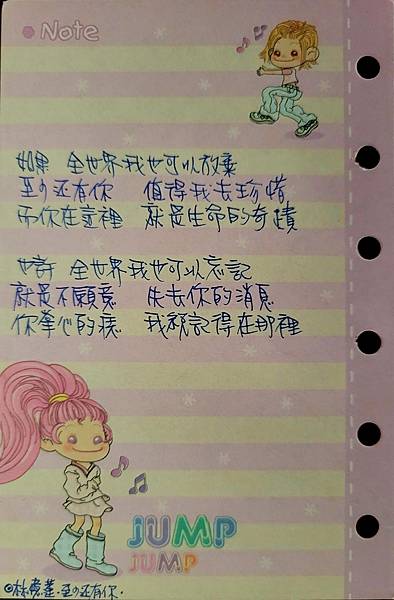 Note
如果 全世界我也可以放棄
至少还有你 值得我去珍惜
而你在這裡 就是生命的奇蹟
也許 全世界我也可以忘記
就是不願意 失去你的消息
你掌心的痣 我總記得在那裡
JUMP
JUMP
©林憶蓮.至少还有你.